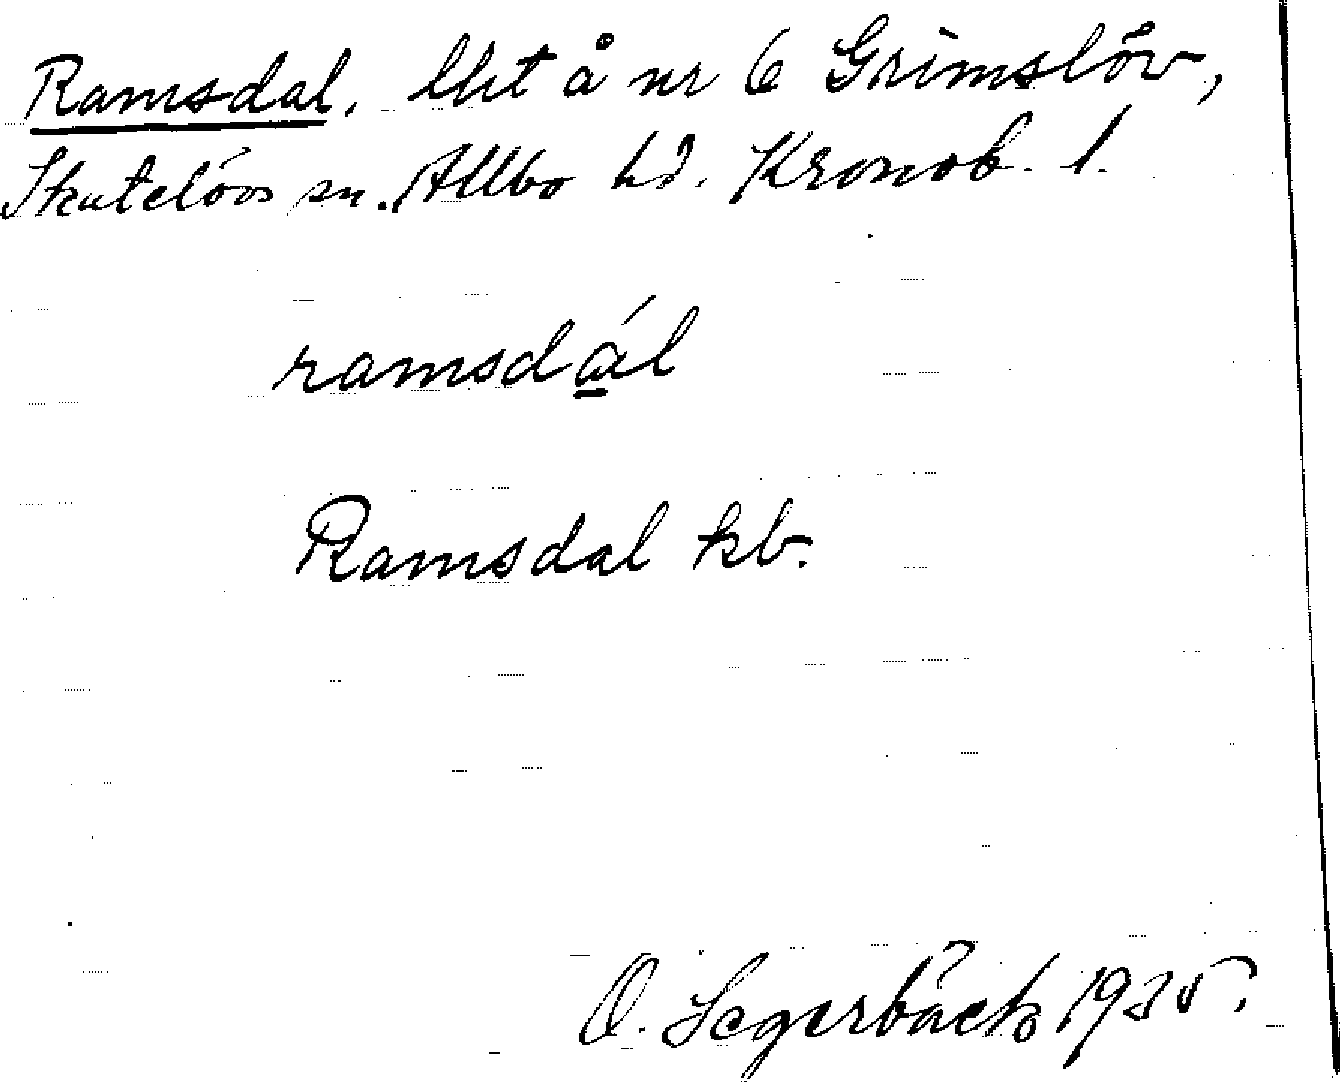 Ramsdal, lht å nr 6 Grimslöv,
Skatelövs sn. Allbo hd. Kronob. l.
ramsdál
Ramsdal kb.
O. Segerbäck 1935.